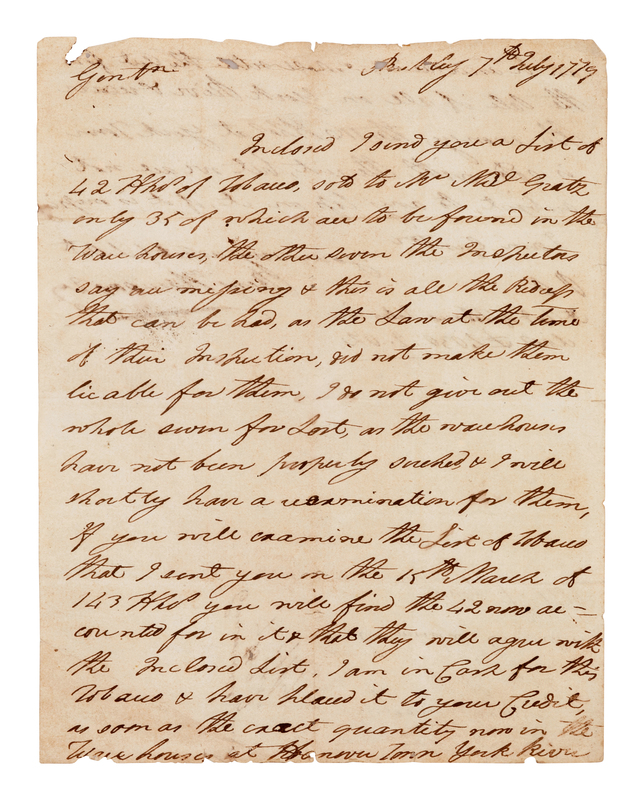 Gentn. 7th July 1779
Inclosed I send you a List of
42 Hhds of Tobaco, sold to Mr. Michl Gratz
only 35 of which are to be found in the
Ware houses, the other seven the Inspectors
say are missing & this is all the Redress
that can be had, as the Law at the time
of their Inspection, did not make them
licable for them, I do not give out the
whole seven for Lost, as the warehouses
have not been properly serched, & I will
shortly have a reexamination for them,
If you will examine the List of Tobaco
that I sent you on the 15th March of
143 Hhds you will find the 42 now ac-
counted for in it & that they will agree with
the Inclosed List, I am in Cash for this
Tobaco & have placed it to your Credit,
as soon as the exact quantity now in the
Ware houses at Hanover Town York River